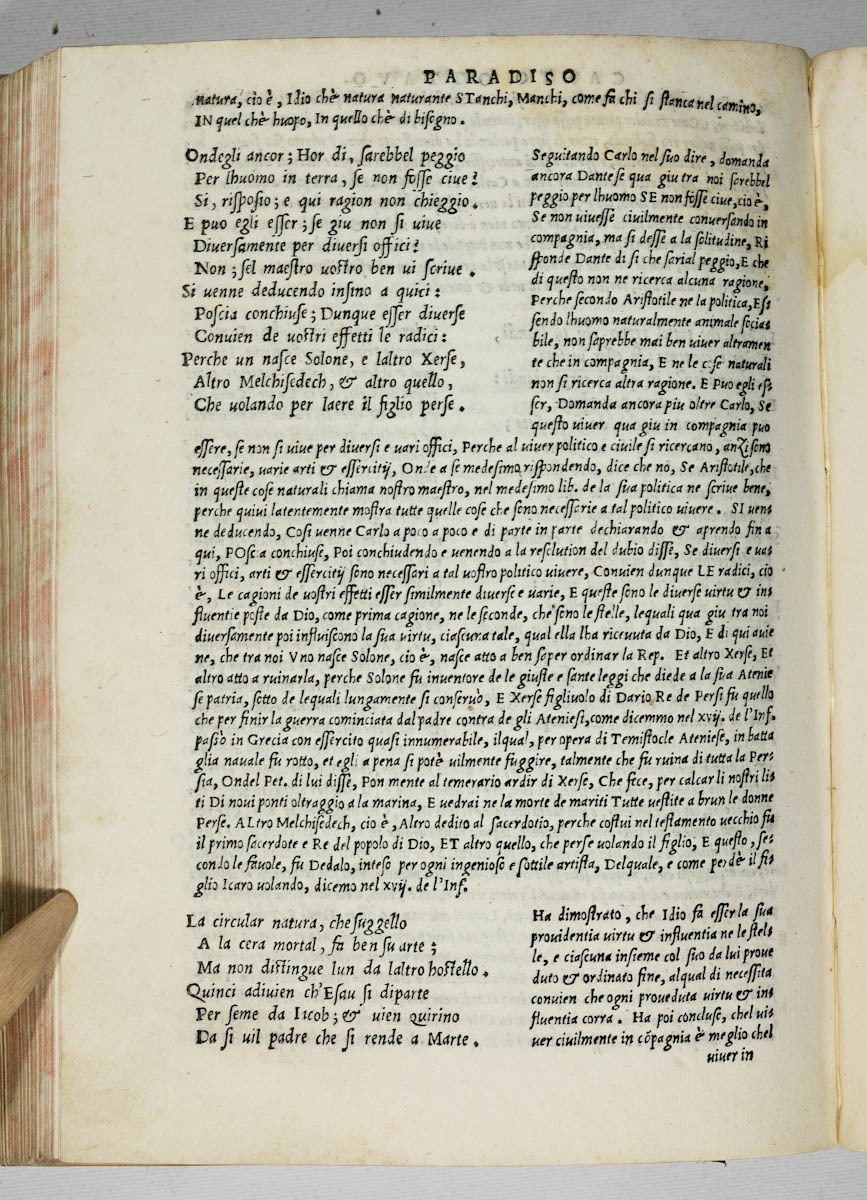 PARADISO
natura, cio è, Idio chè natura naturante STanchi, Manchi, come fa chi si stanca nel camino,
IN quel chè huopo, In quello chè di bisegno.
Ondegli ancor; Hor di, sarebbel peggio
Per lhuomo in terra, se non fosse ciue?
Si, risposio; e qui ragion non chieggio.
E puo egli esser; se giu non si uiue
Diuersamente per diuersi offici?
Non; sel maestro uostro ben ui scriue.
Si uenne deducendo insino a quici:
Poscia conchiuse; Dunque esser diuerse
Conuien de uostri effetti le radici:
Perche un nasce Solone, e laltro Xerse,
Altro Melchisedech, & altro quello,
Che uolando per laere il figlio perse.
Seguitando Carlo nel suo dire, domanda
ancora Dante se qua giu tra noi sarebbel
peggio per lhuomo SE non fosse ciue, cio è,
Se non uiuesse ciuilmente conuersando in
compagnia, ma si desse a la solitudine, Ri
sponde Dante di si che saria l peggio, E che
di questo non ne ricerca alcuna ragione,
Perche secondo Aristotile ne la politica, Es
sendo lhuomo naturalmente animale socia
bile, non saprebbe mai ben uiuer altramen
te che in compagnia, E ne le cose naturali
non si ricerca altra ragione. E Puo egli es
ser, Domanda ancora piu oltre Carlo, Se
questo uiuer qua giu in compagnia puo
essere, se non si uiue per diuersi e uari offici, Perche al uiuer politico e ciuile si ricercano, anzi sono
necessarie, uarie arti & essercitij, Onde a se medesimo rispondendo, dice che nò, Se Aristotile, che
in queste cose naturali chiama nostro maestro, nel medesimo lib. de la sua politica ne scriue bene,
perche quiui latentemente mostra tutte quelle cose che sono necessarie a tal politico uiuere. SI uen
ne deducendo, Cosi uenne Carlo a poco a poco e di parte in parte dechiarando & aprendo fin a
qui, POscia conchiuse, Poi conchiudendo e uenendo a la resolution del dubio disse, Se diuersi e ua
ri offici, arti & essercitij sono necessari a tal uostro politico uiuere, Conuien dunque LE radici, cio
è, Le cagioni de uostri effetti esser similmente diuerse e uarie, E queste sono le diuerse uirtu & in
fluentie poste da Dio, come prima cagione, ne le seconde, che sono le stelle, lequali qua giu tra noi
diuersamente poi influiscono la sua uirtu, ciascuna tale, qual ella lha riceuuta da Dio, E di qui auie
ne, che tra noi Vno nasce Solone, cio è, nasce atto a ben saper ordinar la Rep. Et altro Xerse, Et
altro atto a ruinarla, perche Solone fu inuentore de le giuste e sante leggi che diede a la sua Atenie
se patria, sotto de lequali lungamente si conseruò, E Xerse figliuolo di Dario Re de Persi fu quello
che per finir la guerra cominciata dal padre contra de gli Ateniesi, come dicemmo nel xvij. de l'Inf.
passò in Grecia con essercito quasi innumerabile, ilqual, per opera di Temistocle Ateniese, in batta
glia nauale fu rotto, et egli a pena si potè uilmente fuggire, talmente che fu ruina di tutta la Per
sia, Ondel Pet. di lui disse, Pon mente al temerario ardir di Xerse, Che fece, per calcar li nostri li
ti Di noui ponti oltraggio a la marina, E uedrai ne la morte de mariti Tutte uestite a brun le donne
Perse. ALtro Melchisedech, cio è, Altro dedito al sacerdotio, perche costui nel testamento uecchio fu
il primo sacerdote e Re del popolo di Dio, ET altro quello, che perse uolando il figlio, E questo, se
condo le fauole, fu Dedalo, inteso per ogni ingenioso e sottile artista, Delquale, e come perdè il fi
glio Icaro uolando, dicemo nel xvij. de l'Inf.
La circular natura, che suggello
A la cera mortal, fa ben su arte;
Ma non distingue lun da laltro hostello.
Quinci adiuien ch'Esau si diparte
Per seme da Iacob; & uien quirino
Da si uil padre che si rende a Marte.
Ha dimostrato, che Idio fa esser la sua
prouidentia uirtu & influentia ne le stel
le, e ciascuna insieme col suo da lui proue
duto & ordinato fine, alqual di necessita
conuien che ogni proueduta uirtu & in
fluentia corra. Ha poi concluse, chel ui
uer ciuilmente in cōpagnia è meglio chel
uiuer in